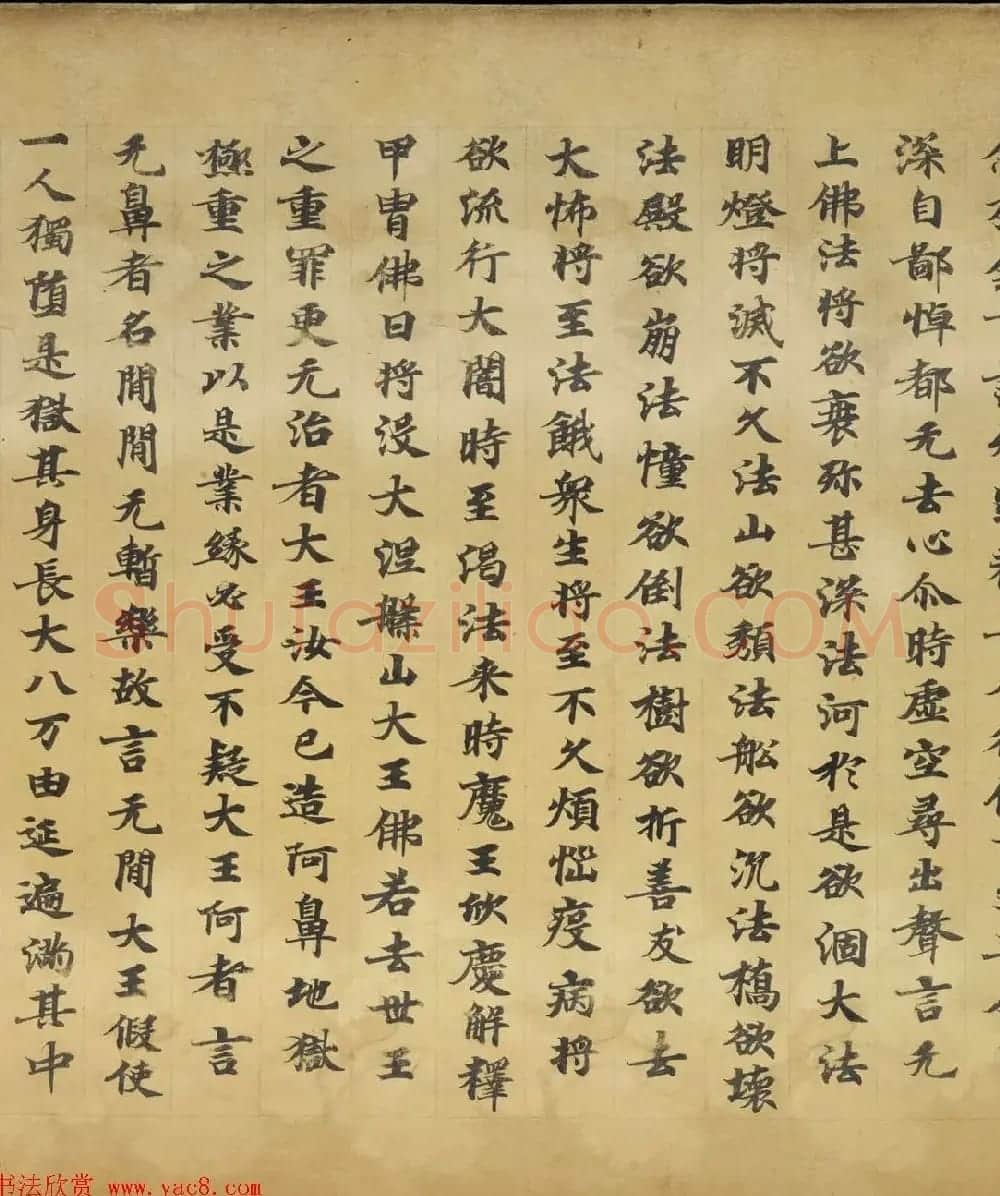 深自鄙悼都无去心尒時虛空尋出聲言无
上佛法將欲衰弥甚深法河於是欲涸大法
明燈將滅不久法山欲頹法舩欲沉法橋欲壞
法殿欲崩法幢欲倒法樹欲折善友欲去
大怖將至法餓衆生將至不久煩惱疫病將
欲流行大闇時至渴法来時魔王欣慶解釋
甲冑佛日將没大涅槃山大王佛若去世王
之重罪更无治者大王汝今已造阿鼻地獄
極重之業以是業緣必受不疑大王何者言
无鼻者名間間无暫樂故言无間大王假使
一人獨墮是獄其身長大八万由延遍滿其中
Shufaziliao.COM
书法欣赏 www.yac8.com